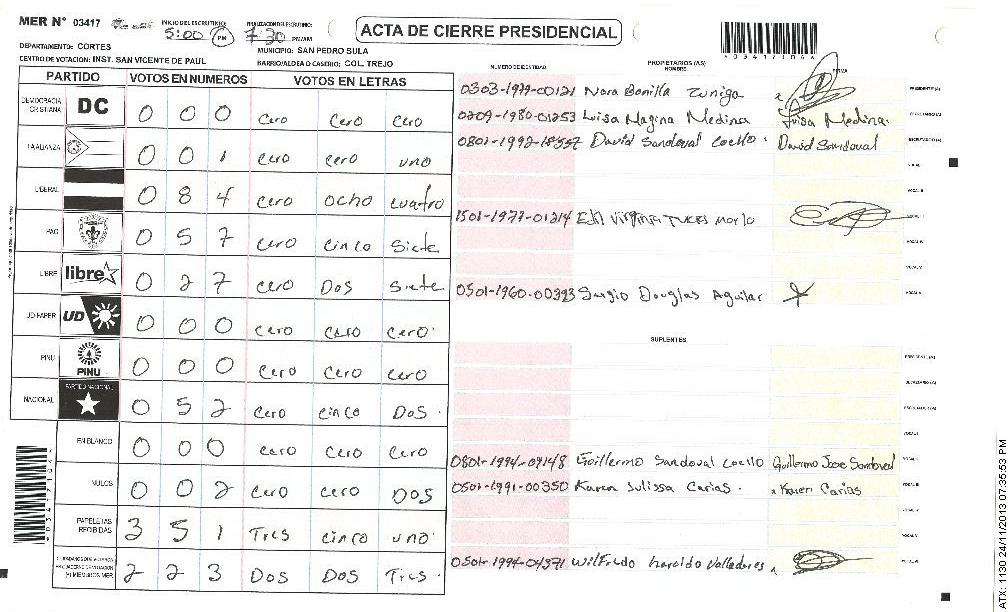 MER N° 03417 INICIO DEL ESCRUTINIO: 5:00 PM FINALIZACION DEL ESCRUTINIO: 7:30 PM/AM
ACTA DE CIERRE PRESIDENCIAL
DEPARTAMENTO: CORTES MUNICIPIO: SAN PEDRO SULA
CENTRO DE VOTACION: INST. SAN VICENTE DE PAUL BARRIO/ALDEA O CASERIO: COL. TREJO
PARTIDO VOTOS EN NUMEROS VOTOS EN LETRAS
DEMOCRACIA CRISTIANA DC 0 0 0 Cero Cero Cero
LA ALIANZA 0 0 1 Cero cero uno
LIBERAL 0 8 4 cero ocho cuatro
PAC 0 5 7 cero cinco Siete
LIBRE libre 0 2 7 cero Dos Siete
UD FAPER UD 0 0 0 cero cero cero
PINU PINU 0 0 0 cero cero cero
NACIONAL PARTIDO NACIONAL 0 5 2 cero cinco Dos
EN BLANCO 0 0 0 cero cero cero
NULOS 0 0 2 cero cero Dos
PAPELETAS RECIBIDAS 3 5 1 Tres cinco uno
2 2 3 Dos Dos Tres
NUMERO DE IDENTIDAD PROPIETARIOS (AS) NOMBRE FIRMA
Nora Bonilla Zuniga PRESIDENTE (A)
0209-1980-01253 Luisa Medina Luisa Medina SECRETARIO (A)
David Sandoval Coello David Sandoval ESCRUTADOR (A)
VOCAL I
VOCAL II
1501-1977-01214 Virginia VOCAL III
VOCAL IV
VOCAL V
0501-1960-00393 Sergio Douglas Aguilar
SUPLENTES
PRESIDENTE (A)
SECRETARIO (A)
ESCRUTADOR (A)
VOCAL I
Guillermo Sandoval Coello Guillermo Jose Sandoval
0501-1991-00350 Karen Julissa Carias Karen Carias
0501-1994-04371 Wilfredo Haroldo Valladares
ATX: 1130 24/11/2013 07:35:53 PM